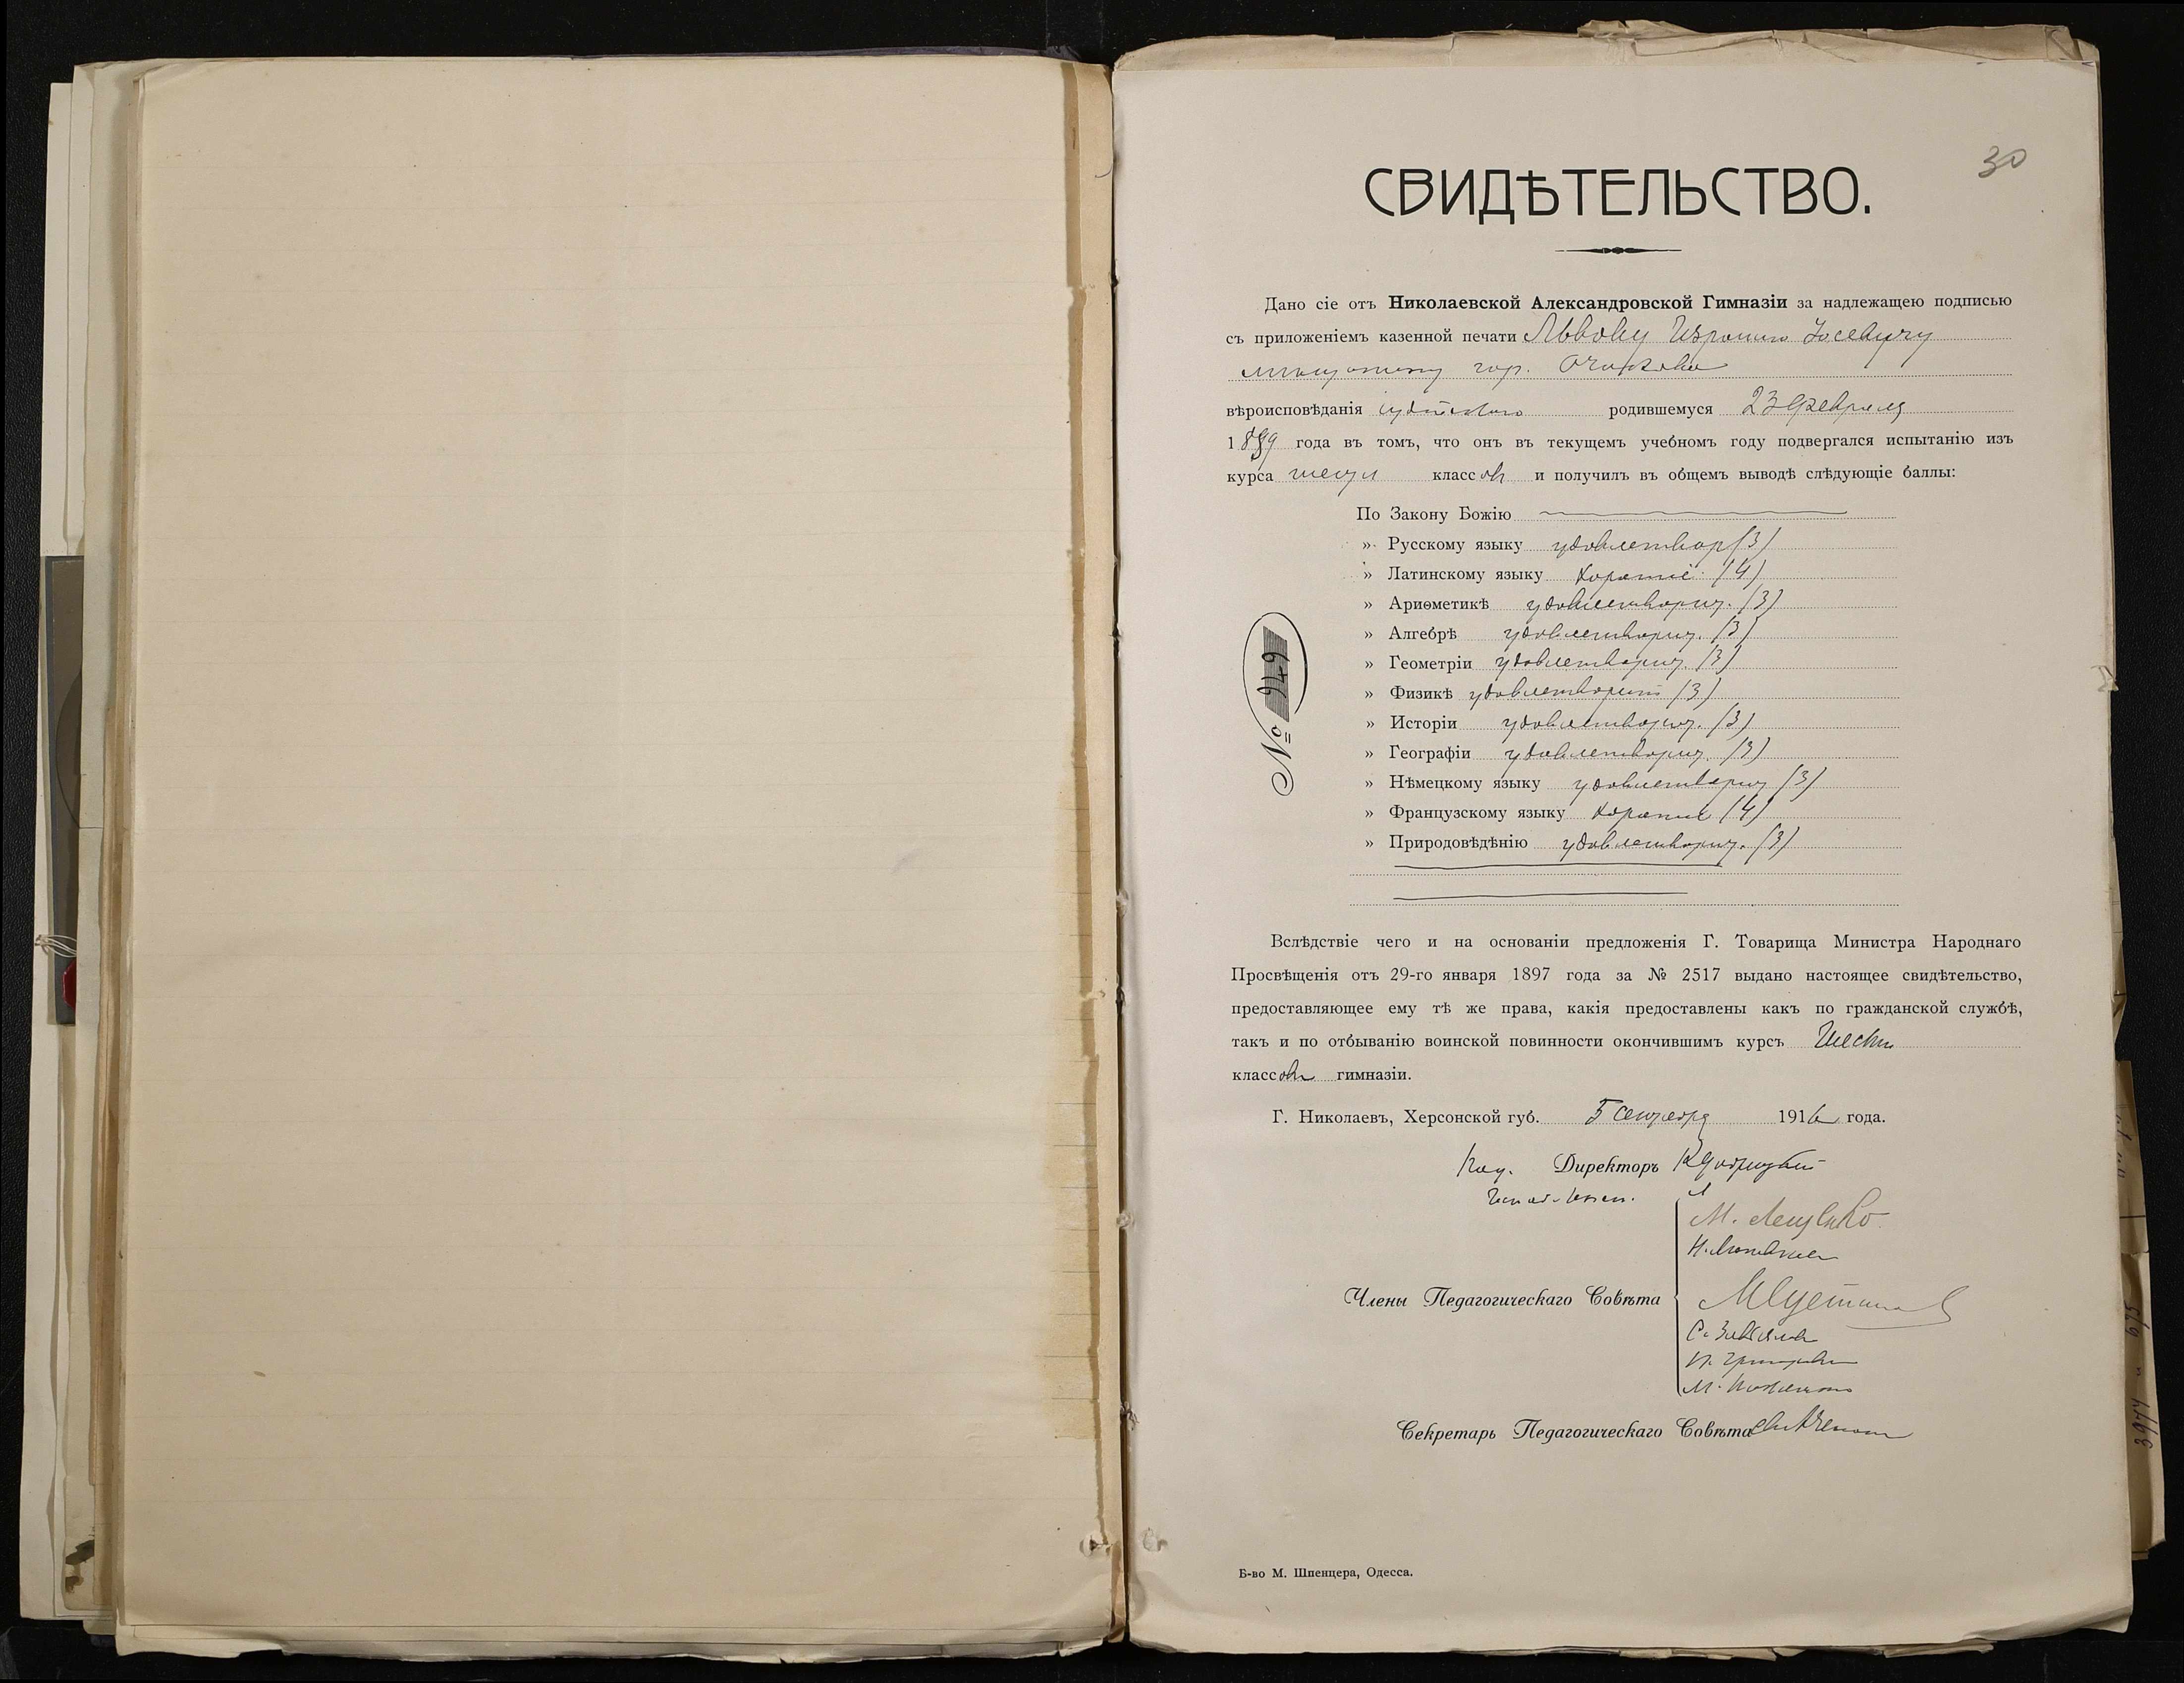 30
СВИДѢТЕЛЬСТВО.
Дано сіе отъ Николаевской Александровской Гимназіи за надлежащею подписью
съ приложеніемъ казенной печати Львову Израилю
мѣщанину гор. Очакова
вѣроисповѣданія іудейскаго родившемуся 23 февраля
18 9 года въ томъ, что онъ въ текущемъ учебномъ году подвергался испытанію изъ
курса шести классовъ и получилъ въ общемъ выводѣ слѣдующіе баллы:
По Закону Божію
» Русскому языку удовлетвор (3)
» Латинскому языку хорошіе (4)
» Ариѳметикѣ удовлетворит. (3)
» Алгебрѣ удовлетворит. (3)
» Геометріи удовлетворит. (3)
» Физикѣ удовлетворит (3)
» Исторіи удовлетворит. (3)
» Географіи удовлетворит. (3)
» Нѣмецкому языку удовлетворит (3)
» Французскому языку хорошіе (4)
» Природовѣдѣнію удовлетворит. (3)
№ 949
Вслѣдствіе чего и на основаніи предложенія Г. Товарища Министра Народнаго
Просвѣщенія отъ 29-го января 1897 года за № 2517 выдано настоящее свидѣтельство,
предоставляющее ему тѣ же права, какія предоставлены какъ по гражданской службѣ,
такъ и по отбыванію воинской повинности окончившимъ курсъ Шести
классовъ гимназіи.
Г. Николаевъ, Херсонской губ. 5 сентября 1916 года.
Директоръ
Члены Педагогическаго Совѣта
Секретарь Педагогическаго Совѣта
Б-во М. Шпенцера, Одесса.